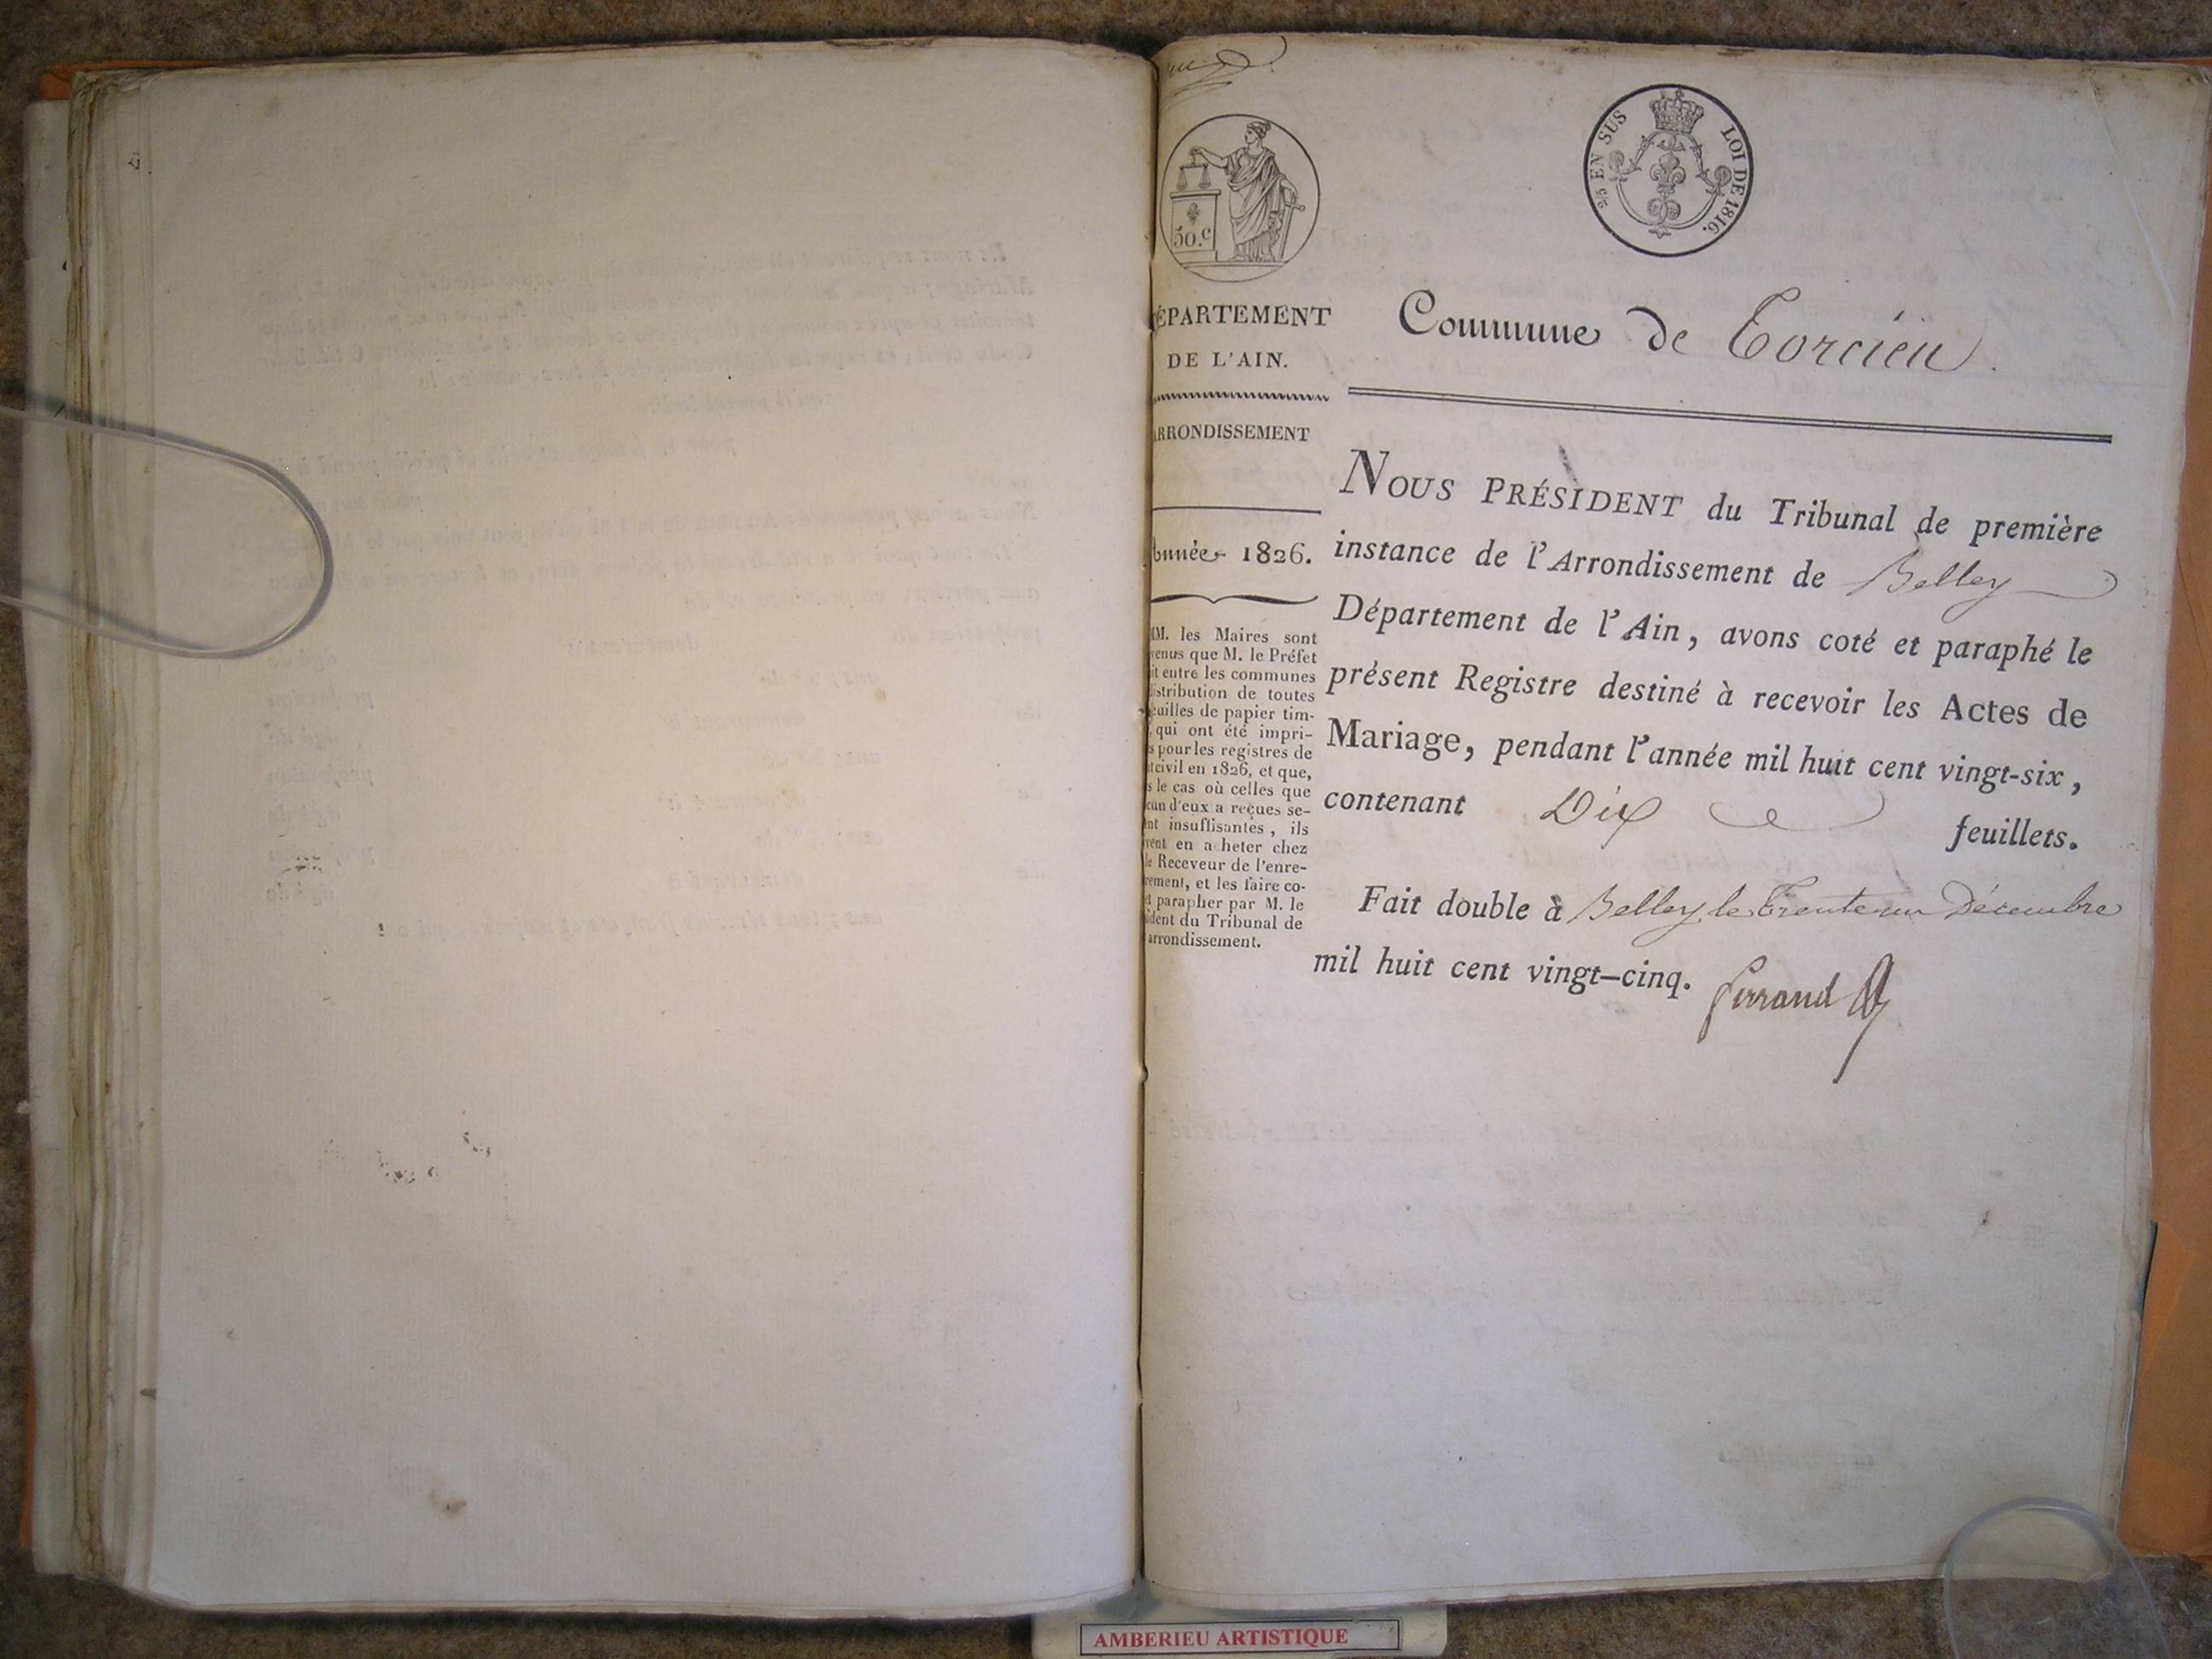 2/5 EN SUS
LOI DE 1816.
50.c
ÉPARTEMENT
DE L'AIN.
Commune de Torcieu.
ARRONDISSEMENT
Année 1826.
NOUS PRÉSIDENT du Tribunal de première
instance de l'Arrondissement de Belley
Département de l'Ain, avons coté et paraphé le
présent Registre destiné à recevoir les Actes de
Mariage, pendant l'année mil huit cent vingt-six,
contenant Dix feuillets.
Fait double à Belley, le trente un Décembre
mil huit cent vingt-cinq.
MM. les Maires sont
venus que M. le Préfet
it entre les communes
distribution de toutes
feuilles de papier tim-
qui ont été impri-
s pour les registres de
tcivil en 1826, et que,
s le cas où celles que
cun d'eux a reçues se-
nt insuffisantes, ils
vent en acheter chez
le Receveur de l'enre-
rement, et les faire co-
et parapher par M. le
sident du Tribunal de
arrondissement.
AMBERIEU ARTISTIQUE